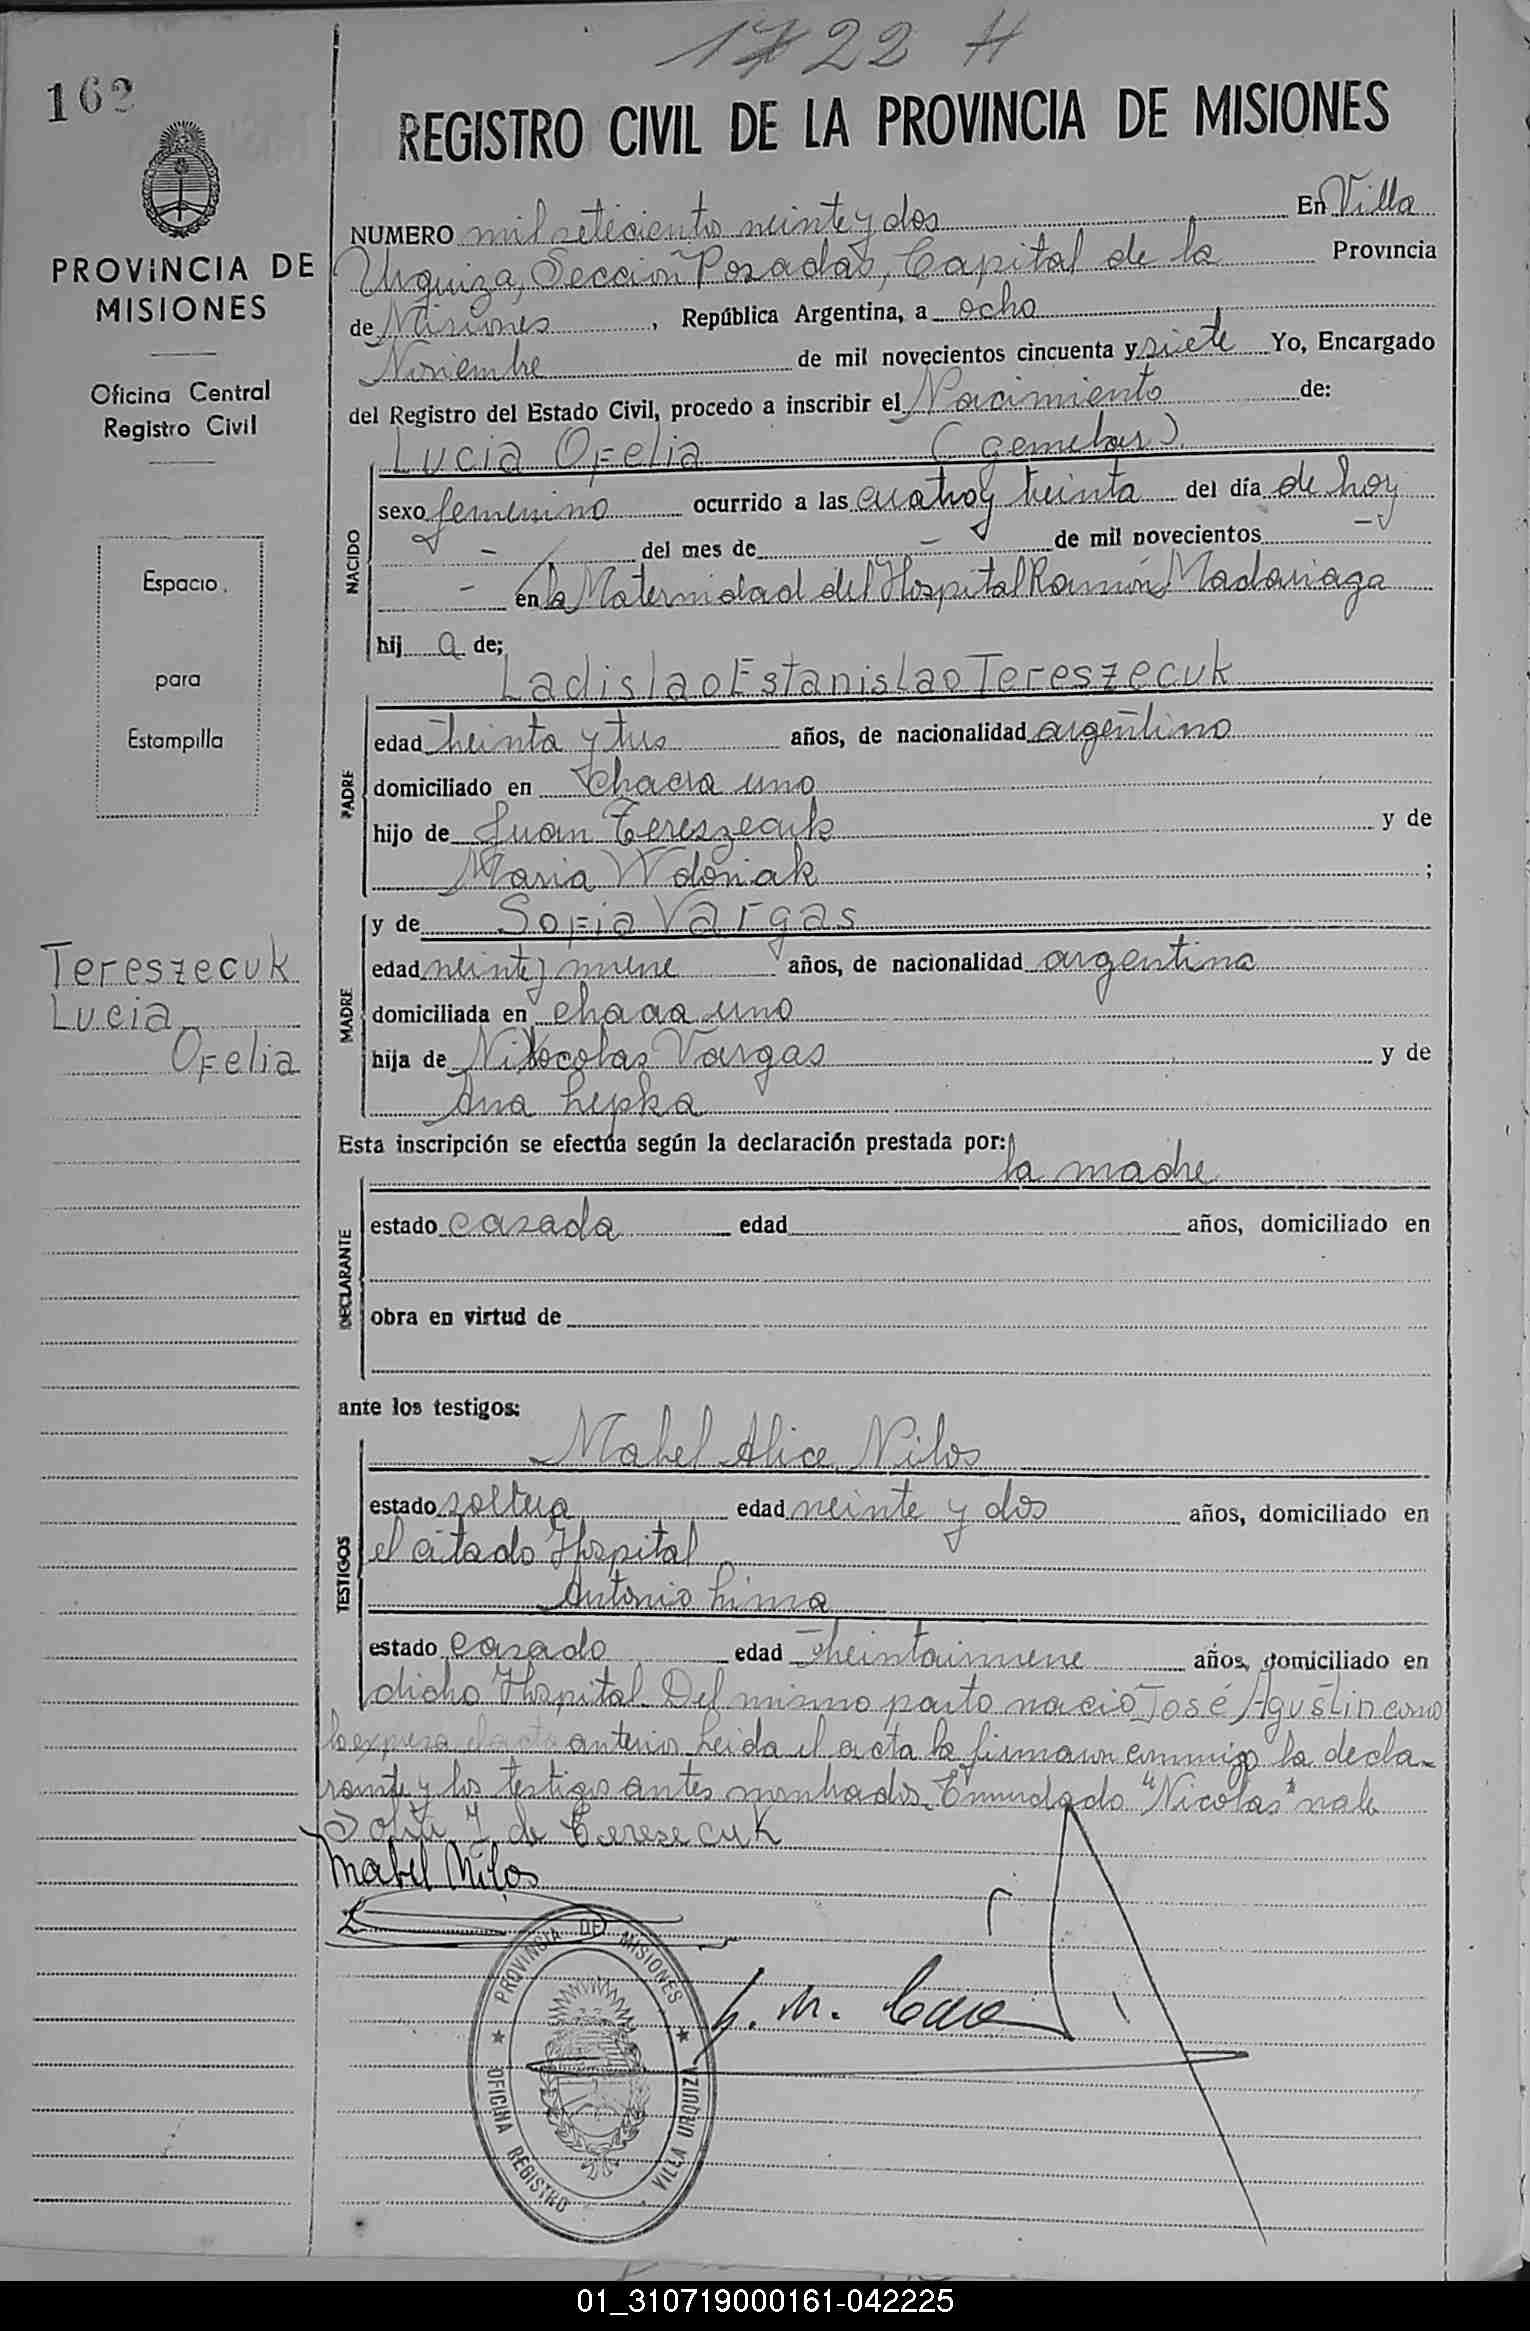 1722 H
162
REGISTRO CIVIL DE LA PROVINCIA DE MISIONES
PROVINCIA DE
MISIONES
Oficina Central
Registro Civil
Espacio
para
Estampilla
Tereszecuk
Lucia
Ofelia
NUMERO mil setecientos veinte y dos En Villa
Urquiza, Sección Posadas, Capital de la Provincia
de Misiones, República Argentina, a ocho
Noviembre de mil novecientos cincuenta y siete Yo, Encargado
del Registro del Estado Civil, procedo a inscribir el Nacimiento de:
Lucia Ofelia (gemelar)
NACIDO
sexo femenino ocurrido a las cuatro y treinta del día de hoy
- del mes de - de mil novecientos -
- en la Maternidad del Hospital Ramón Madariaga
hij a de;
Ladislao Estanislao Tereszecuk
PADRE
edad treinta y tres años, de nacionalidad argentino
domiciliado en chacra uno
hijo de Juan Tereszecuk y de
Maria Wdoniak ;
y de Sofia Vargas
MADRE
edad veinte y nueve años, de nacionalidad argentina
domiciliada en chacra uno
hija de Nicolas Vargas y de
Ana Lepka
Esta inscripción se efectúa según la declaración prestada por:
la madre
DECLARANTE
estado casada edad años, domiciliado en
obra en virtud de
ante los testigos:
Mabel Alice Nilos
TESTIGOS
estado soltera edad veinte y dos años, domiciliado en
el citado Hospital
Antonio Lima
estado casado edad treintainueve años, domiciliado en
dicho Hospital. Del mismo parto nació José Agustin como
lo expresa el acta anterior. Leida el acta la firmaron conmigo la decla-
rante y los testigos antes nombrados. Enmendado "Nicolas" vale
Sofia V. de Teresecuk
Mabel Nilos
PROVINCIA DE MISIONES
OFICINA REGISTRO VILLA URQUIZA
01_310719000161-042225